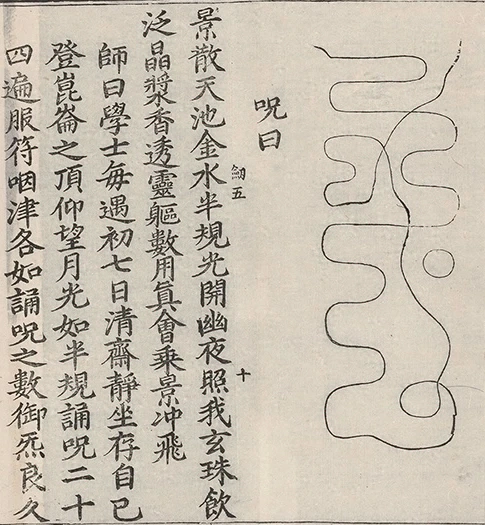 呪曰
劒五
十
景散天池金水半規光開幽夜照我玄珠飲
泛晶漿香透靈軀數用真會乗景冲飛
師曰學士每遇初七日清齋靜坐存自己
登崑崙之頂仰望月光如半規誦呪二十
四遍服符咽津各如誦呪之數御炁良久